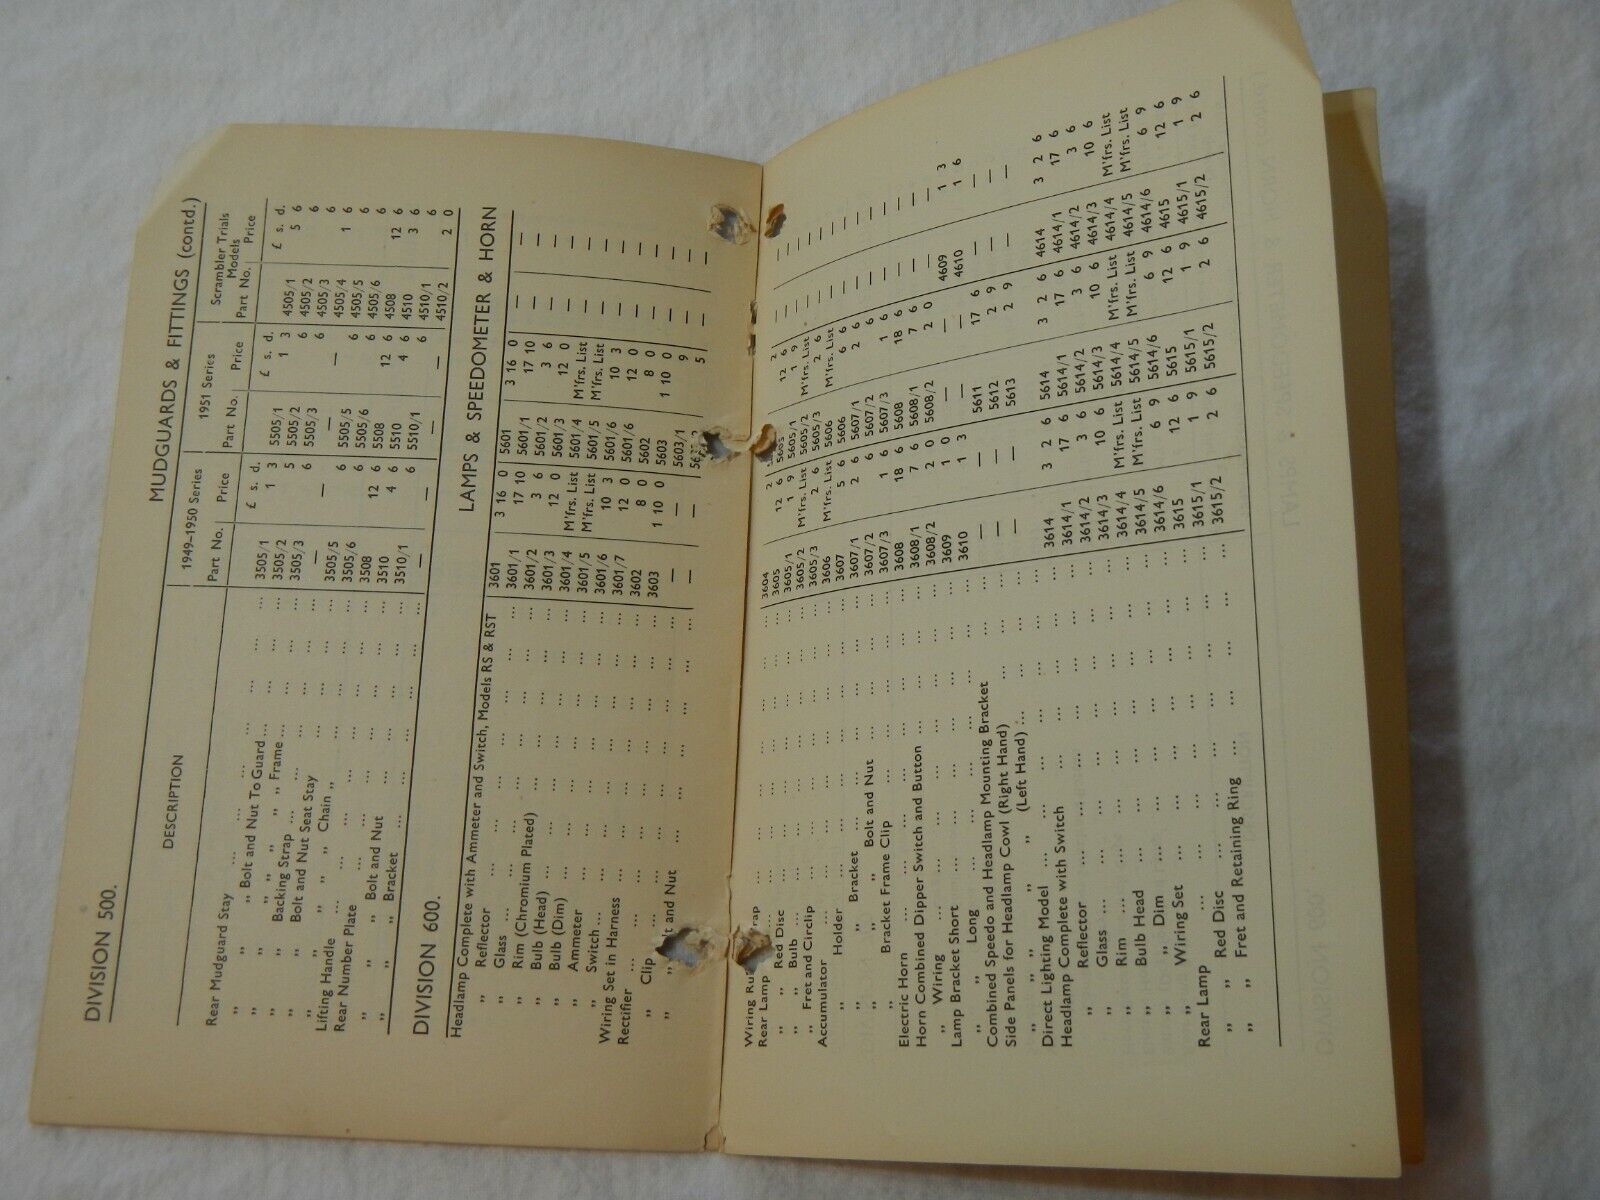 DIVISION 500.
MUDGUARDS & FITTINGS (contd.)
DESCRIPTION 1949–1950 Series 1951 Series Scrambler Trials Models
Part No. Price Part No. Price Part No. Price
£ s. d. £ s. d. £ s. d.
Rear Mudguard Stay ... ... ... ... ... 3505/1 1 3 5505/1 1 3 4505/1 5 6
„ „ „ Bolt and Nut To Guard ... ... ... ... 3505/2 5 5505/2 6 4505/2 6
„ „ „ „ „ „ Frame ... ... ... ... 3505/3 6 5505/3 6 4505/3 6
„ „ „ Backing Strap ... ... ... ... — — — — 4505/4 1 6
„ „ „ Bolt and Nut Seat Stay ... ... ... 3505/5 6 5505/5 6 4505/5 6
„ „ „ „ „ „ Chain „ ... ... ... 3505/6 6 5505/6 6 4505/6 6
Lifting Handle ... ... ... ... ... ... 3508 12 6 5508 12 6 4508 12 6
Rear Number Plate ... ... ... ... ... 3510 4 6 5510 4 6 4510 3 6
„ „ „ Bolt and Nut ... ... ... ... 3510/1 6 5510/1 6 4510/1 6
„ „ „ Bracket ... ... ... ... — — — — 4510/2 2 0
DIVISION 600.
LAMPS & SPEEDOMETER & HORN
Headlamp Complete with Ammeter and Switch, Models RS & RST 3601 3 16 0 5601 3 16 0 — —
„ Reflector ... ... ... ... ... 3601/1 17 10 5601/1 17 10 — —
„ Glass ... ... ... ... ... 3601/2 3 6 5601/2 3 6 — —
„ Rim (Chromium Plated) ... ... ... ... 3601/3 12 0 5601/3 12 0 — —
„ Bulb (Head) ... ... ... ... ... 3601/4 M'frs. List 5601/4 M'frs. List — —
„ Bulb (Dim) ... ... ... ... ... 3601/5 M'frs. List 5601/5 M'frs. List — —
„ Ammeter ... ... ... ... ... 3601/6 10 3 5601/6 10 3 — —
„ Switch ... ... ... ... ... 3601/7 12 0 5601/6 12 0 — —
Wiring Set in Harness ... ... ... ... ... 3602 8 0 5602 8 0 — —
Rectifier ... ... ... ... ... 3603 1 10 0 5603 1 10 0 — —
„ Clip ... ... ... ... ... — — 5603/1 9 — —
„ and Nut ... ... ... ... ... — — 5 — —
Wiring ... ... ... ... 3604 2 2 — —
Rear Lamp ... ... ... ... ... 3605 12 6 5605 12 6 — —
„ „ Red Disc ... ... ... ... ... 3605/1 1 9 5605/1 1 9 — —
„ „ Bulb ... ... ... ... ... 3605/2 M'frs. List 5605/2 M'frs. List — —
„ „ Fret and Circlip ... ... ... ... 3605/3 2 6 5605/3 2 6 — —
Accumulator ... ... ... ... ... 3606 M'frs. List 5606 M'frs. List — —
„ Holder ... ... ... ... ... 3607 5 6 5606 6 6 — —
„ „ Bracket ... ... ... ... 3607/1 2 6 5607/1 2 6 — —
„ „ „ Bolt and Nut ... ... ... 3607/2 6 5607/2 6 — —
„ Bracket Frame Clip ... ... ... ... 3607/3 1 6 5607/3 1 6 — —
Electric Horn ... ... ... ... ... 3608 18 6 5608 18 6 — —
Horn Combined Dipper Switch and Button ... ... ... 3608/1 7 6 5608/1 7 6 — —
„ Wiring ... ... ... ... ... 3608/2 2 0 5608/2 2 0 — —
Lamp Bracket Short ... ... ... ... ... 3609 1 0 — — 4609 1 3
„ „ Long ... ... ... ... ... 3610 1 3 — — 4610 1 6
Combined Speedo and Headlamp Mounting Bracket ... — — 5611 17 6 — —
Side Panels for Headlamp Cowl (Right Hand) ... ... — — 5612 2 9 — —
„ „ „ „ „ (Left Hand) ... ... — — 5613 2 9 — —
Direct Lighting Model ... ... ... ... ...
Headlamp Complete with Switch ... ... ... ... 3614 3 2 6 5614 3 2 6 4614 3 2 6
„ Reflector ... ... ... ... ... 3614/1 17 6 5614/1 17 6 4614/1 17 6
„ Glass ... ... ... ... ... 3614/2 3 6 5614/2 3 6 4614/2 3 6
„ Rim ... ... ... ... ... 3614/3 10 6 5614/3 10 6 4614/3 10 6
„ Bulb Head ... ... ... ... ... 3614/4 M'frs. List 5614/4 M'frs. List 4614/4 M'frs. List
„ „ Dim ... ... ... ... ... 3614/5 M'frs. List 5614/5 M'frs. List 4614/5 M'frs. List
„ Wiring Set ... ... ... ... ... 3614/6 6 9 5614/6 6 9 4614/6 6 9
Rear Lamp ... ... ... ... ... 3615 12 6 5615 12 6 4615 12 6
„ „ Red Disc ... ... ... ... ... 3615/1 1 9 5615/1 1 9 4615/1 1 9
„ „ Fret and Retaining Ring ... ... ... ... 3615/2 2 6 5615/2 2 6 4615/2 2 6